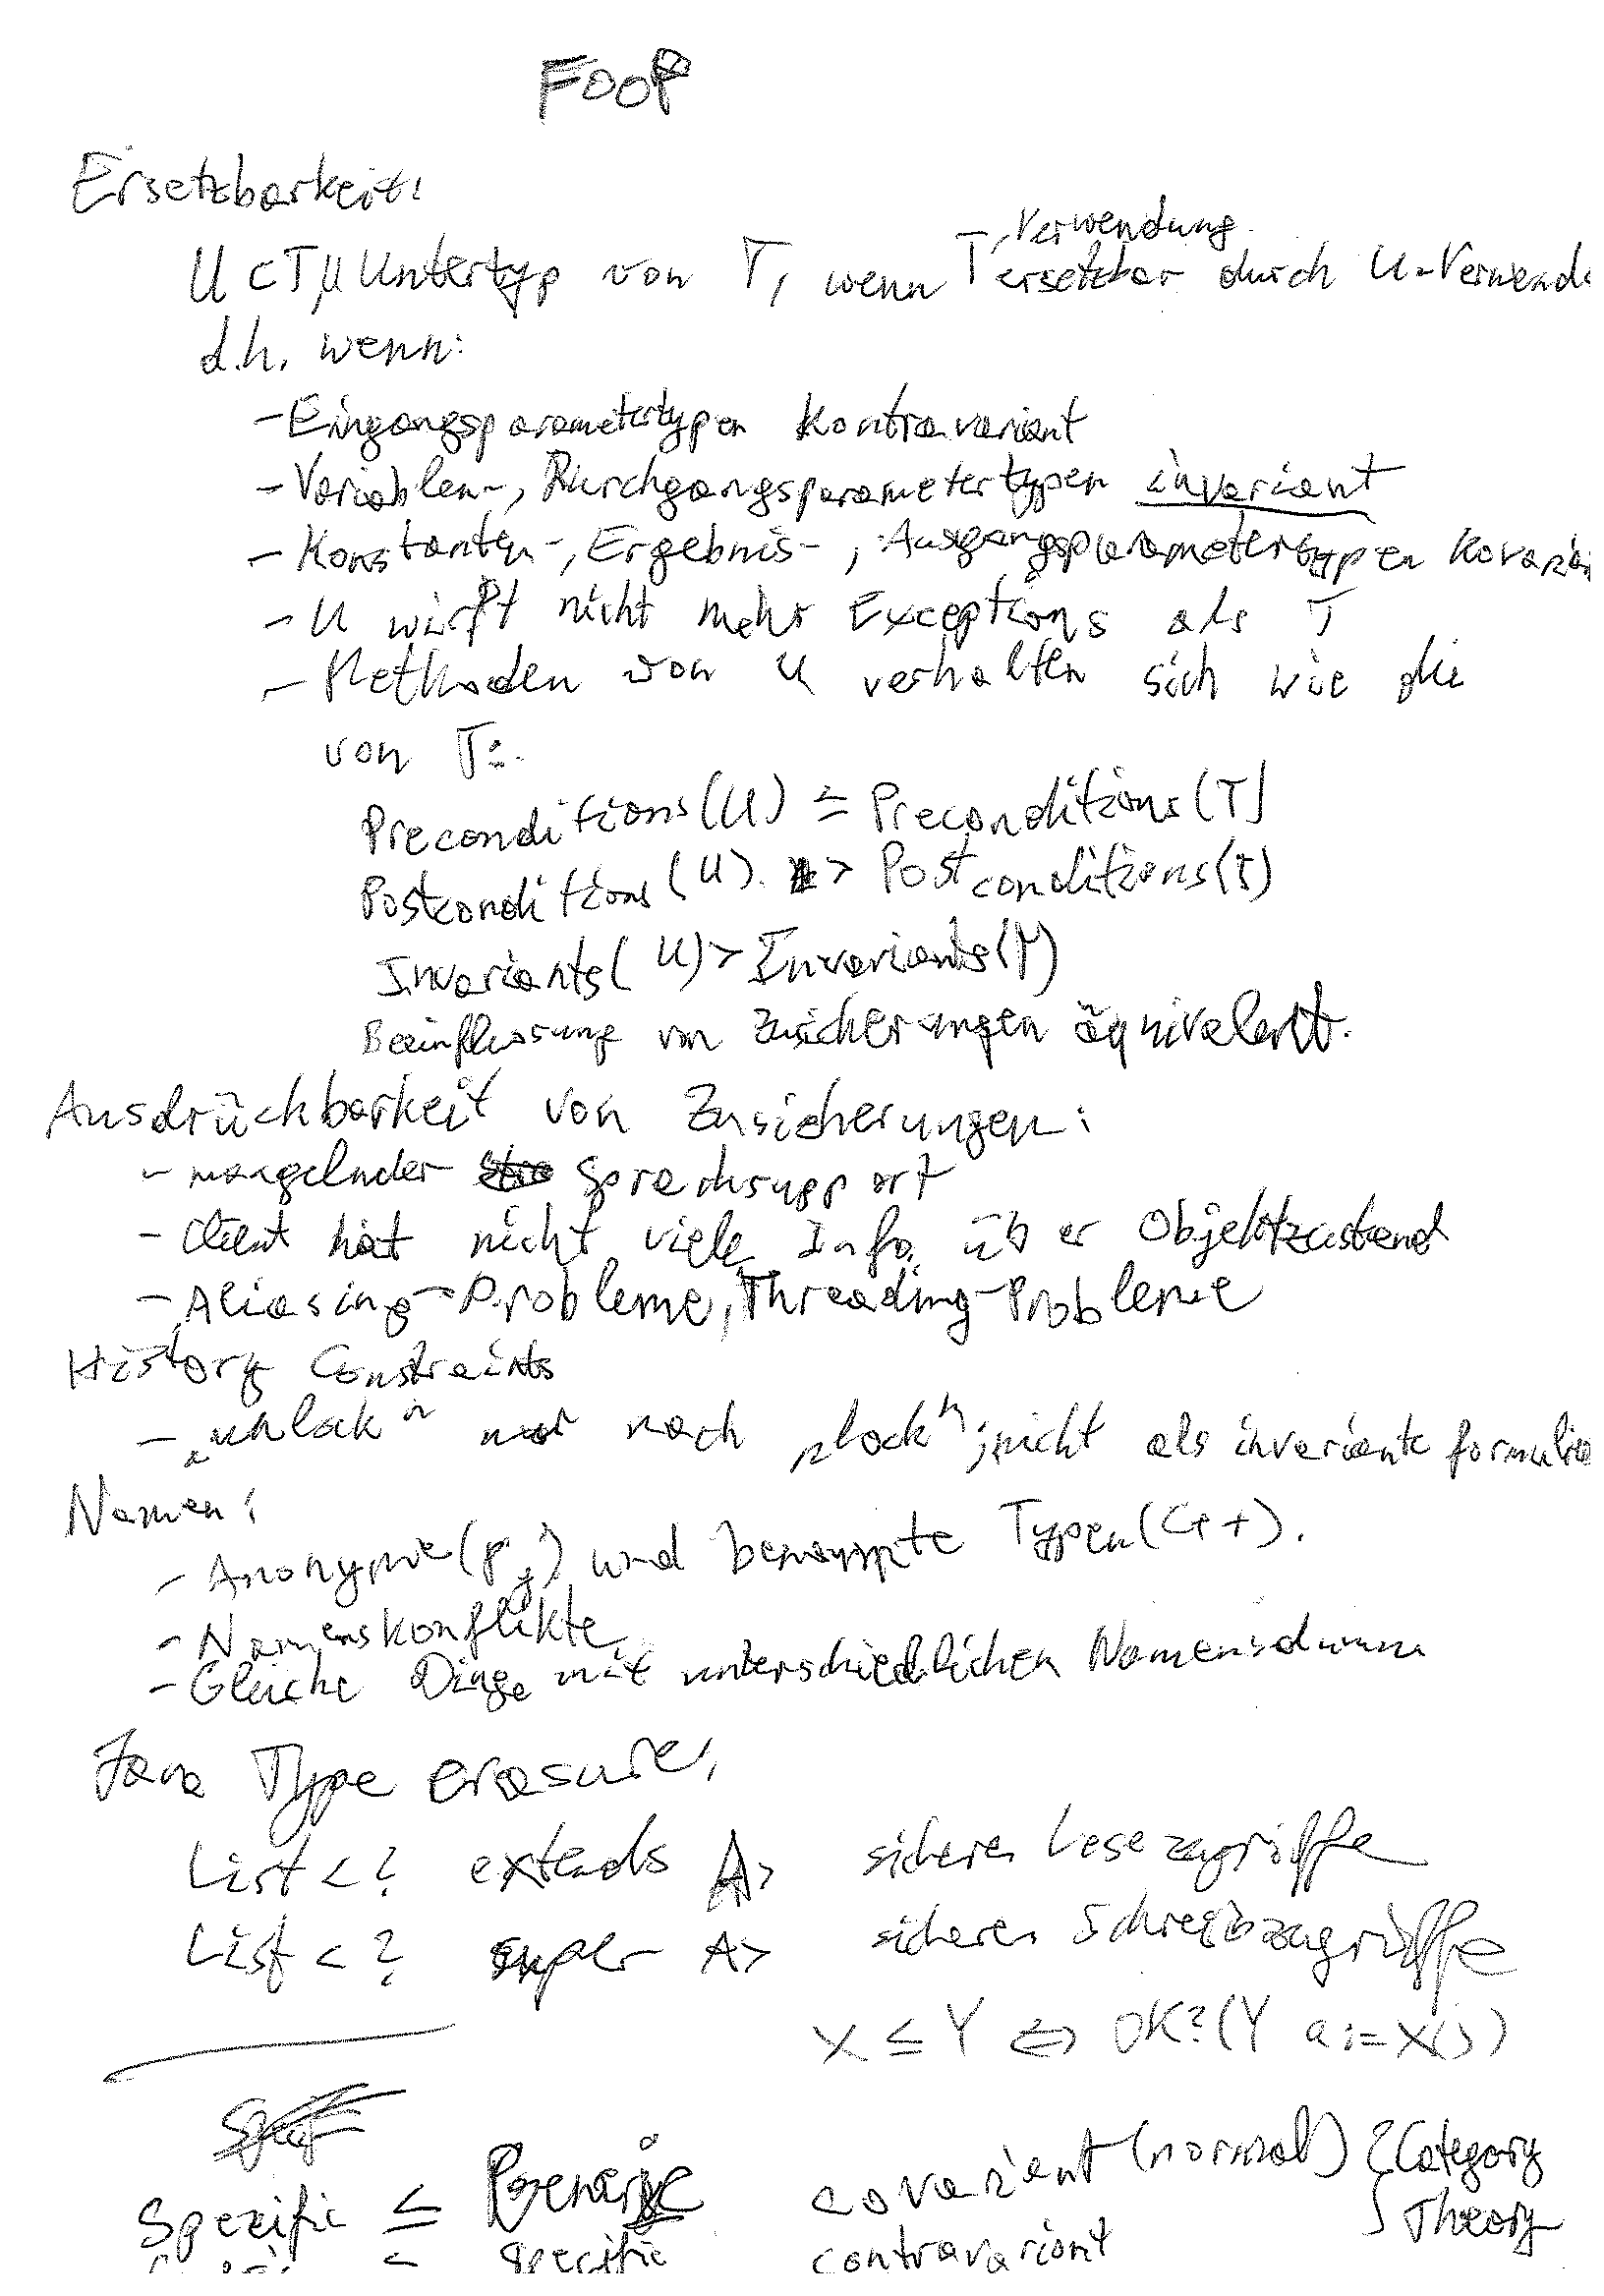 FOOP
Ersetzbarkeit:
Verwendung
U ⊂ T, U Untertyp von T, wenn T ersetzbar durch U-Verwend
d.h. wenn:
- Eingangsparametertypen Kontravariant
- Variablen-, Durchgangsparametertypen invariant
- Konstanten-, Ergebnis-, Ausgangsparametertypen Kovaria
- U wirft nicht mehr Exceptions als T
- Methoden von U verhalten sich wie die
von T:
Preconditions(U) ≤ Preconditions(T)
Postconditions(U) > Postconditions(T)
Invariants(U) > Invariants(T)
Beeinflussung von Zusicherungen äquivalent.
Ausdrückbarkeit von Zusicherungen:
- mangelnder Sprachsupport
- Client hat nicht viele Info über Objektzustand
- Aliasing-Probleme, Threading-Probleme
History Constraints
- „unlock" nur nach „lock"; nicht als invariante formulie
Namen:
- Anonyme( ) und benannte Typen( ).
- Namenskonflikte
- Gleiche Dinge mit unterschiedlichen Namen
Java Type erasure,
List <? extends A> sichere Lesezugriffe
List <? super A> sichere Schreibzugriffe
X ≤ Y ⇔ OK?(Y a := X())
Spezific ≤ Generic covariant (normal) } Category
Theory
≤ Specific contravariant